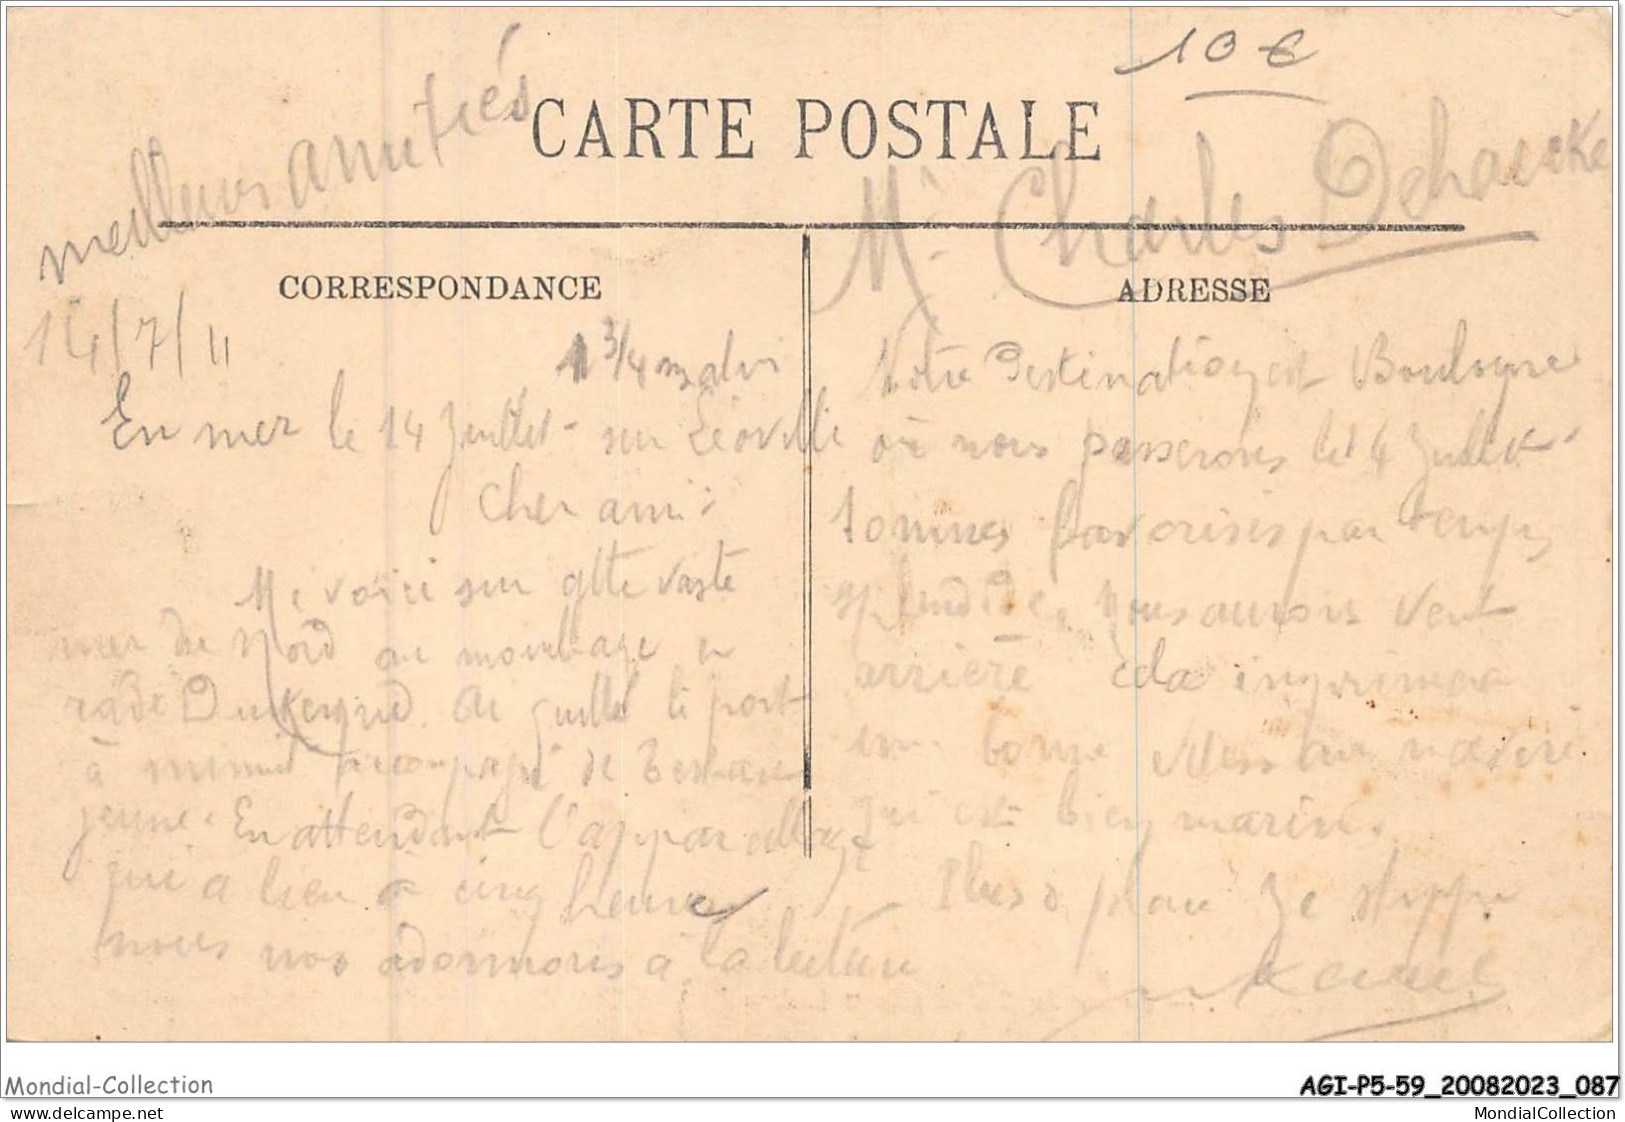 10 €
meilleurs amitiés
CARTE POSTALE
Mr Charles
CORRESPONDANCE
ADRESSE
14/7/11
1 3/4
En mer le 14 Juillet - sur
Cher ami:
Me voici sur cette vaste
mer du Nord au mouillage en
rade Dunkerque. le port
à minuit de
jeune. En attendant l'appareillage
qui a lieu à cinq heures
nous nos adormons à la lecture
Notre Destination est Boulogne
où nous passerons le 14 Juillet
sommes favorisés par temps
splendide, Nous aurons vent
arrière cela imprimera
une bonne au navire
qui est bien marin.
Plus de place Je stoppe
Mondial-Collection
AGI-P5-59_20082023_087
www.delcampe.net
MondialCollection